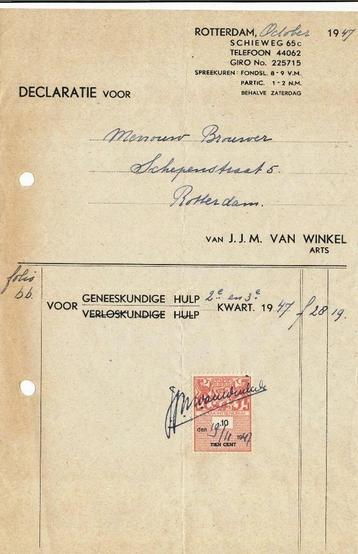 ROTTERDAM, October 1947
SCHIEWEG 65c
TELEFOON 44062
GIRO No. 225715
SPREEKUREN: FONDSL. 8-9 V.M.
PARTIC. 1-2 N.M.
BEHALVE ZATERDAG
DECLARATIE VOOR
Mevrouw Brouwer
Schepenstraat 5.
Rotterdam.
VAN J. J. M. VAN WINKEL
ARTS
folio
bb.
VOOR GENEESKUNDIGE HULP 2e en 3e KWART. 1947 f 28 19.
VERLOSKUNDIGE HULP
JJM van Winkel
10
den 19/11 1947
TIEN CENT